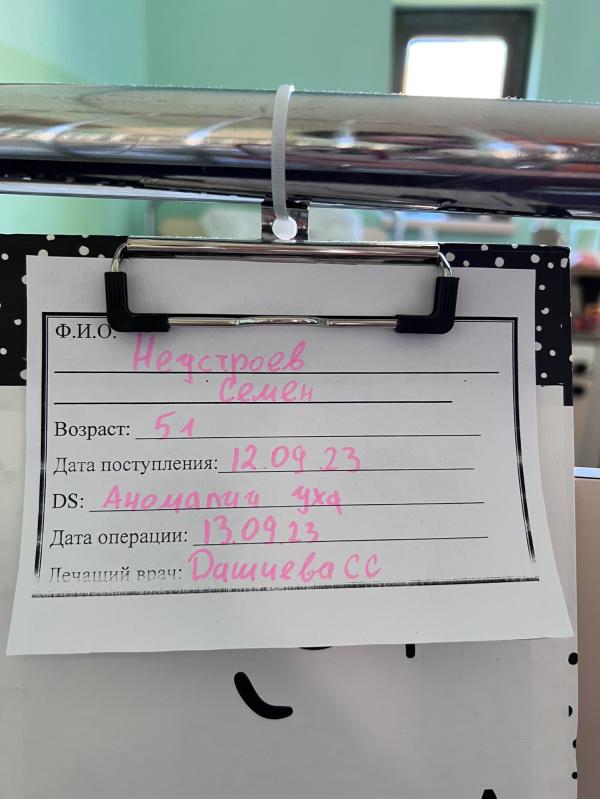 Ф.И.О. Неустроев
Семен
Возраст: 5 л
Дата поступления: 12.09.23
DS: Аномалия уха
Дата операции: 13.09.23
Лечащий врач: Дашиева СС